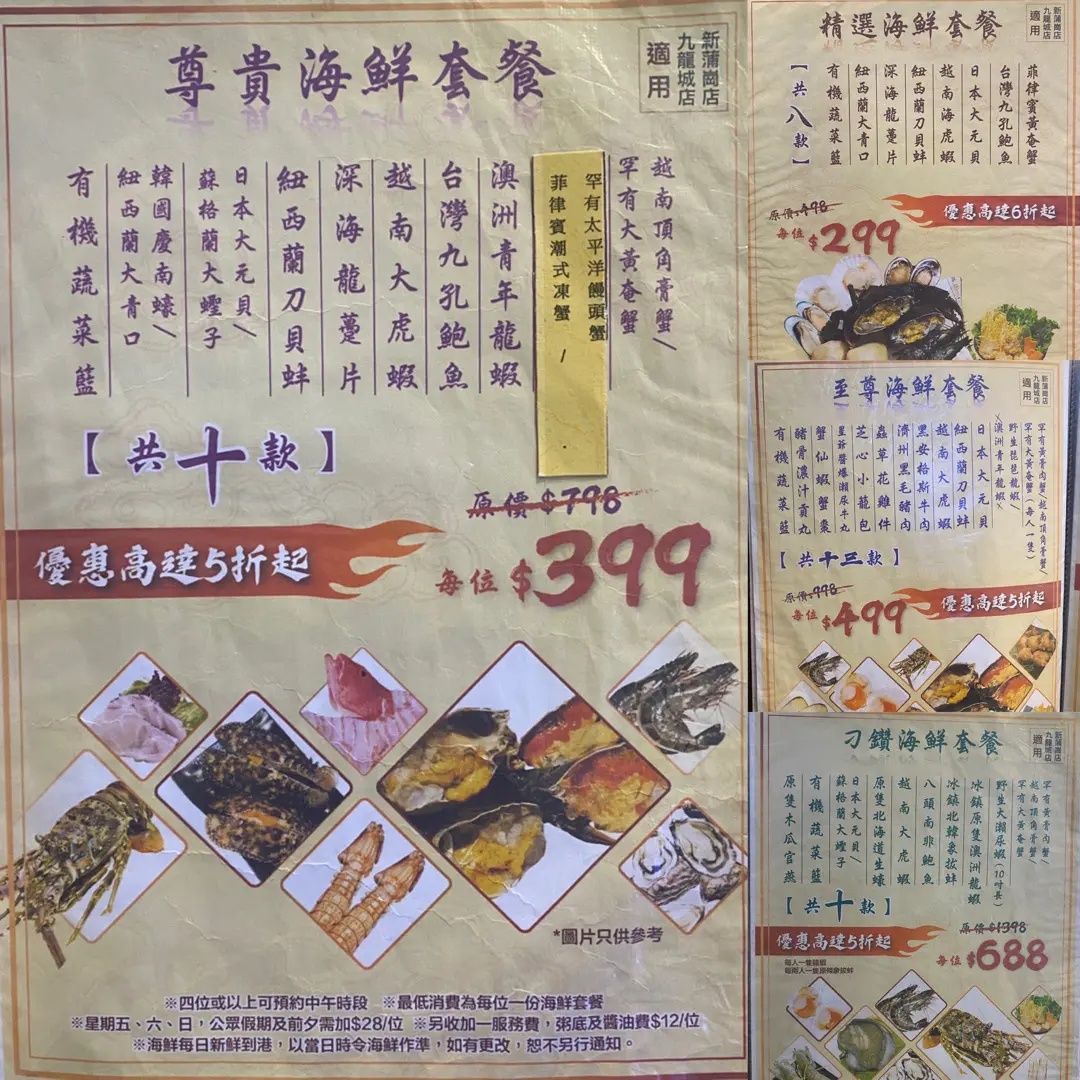 尊貴海鮮套餐
新蒲崗店
九龍城店
適用
越南頂角膏蟹/
罕有大黃奄蟹
罕有太平洋饅頭蟹
菲律賓潮式凍蟹 /
澳洲青年龍蝦
台灣九孔鮑魚
越南大虎蝦
深海龍躉片
紐西蘭刀貝蚌
日本大元貝/
蘇格蘭大蟶子
韓國慶南蠔/
紐西蘭大青口
有機蔬菜籃
【共十款】
原價$798
優惠高達5折起
每位$399
*圖片只供參考
※四位或以上可預約中午時段 ※最低消費為每位一份海鮮套餐
※星期五、六、日，公眾假期及前夕需加$28/位 ※另收加一服務費，粥底及醬油費$12/位
※海鮮每日新鮮到港，以當日時令海鮮作準，如有更改，恕不另行通知。
精選海鮮套餐
新蒲崗店
九龍城店
適用
菲律賓黃奄蟹
台灣九孔鮑魚
日本大元貝
越南海虎蝦
紐西蘭刀貝蚌
深海龍躉片
紐西蘭大青口
有機蔬菜籃
【共八款】
原價$498
優惠高達6折起
每位$299
至尊海鮮套餐
新蒲崗店
九龍城店
適用
罕有黃膏肉蟹/越南頂角膏蟹/
罕有大黃奄蟹(每人一隻)
野生琵琶龍蝦/
澳洲青年龍蝦
日本大元貝
紐西蘭刀貝蚌
越南大虎蝦
黑安格斯牛肉
濟州黑毛豬肉
蟲草花雞件
芝心小龍包
星爺醬爆瀨尿牛丸
蟹仙蝦蟹棗
豬骨濃汁貢丸
有機蔬菜籃
【共十三款】
原價$998
優惠高達5折起
每位$499
刁鑽海鮮套餐
新蒲崗店
九龍城店
適用
罕有黃膏肉蟹/
越南頂角膏蟹/
罕有大黃奄蟹
野生大瀨尿蝦(10吋長)
冰鎮原隻澳洲龍蝦
冰鎮北韓象拔蚌
八頭南非鮑魚
越南大虎蝦
原隻北海道生蠔
日本大元貝/
蘇格蘭大蟶子
有機蔬菜籃
原隻木瓜官燕
【共十款】
原價$1398
優惠高達5折起
每位$688
每人一隻龍蝦